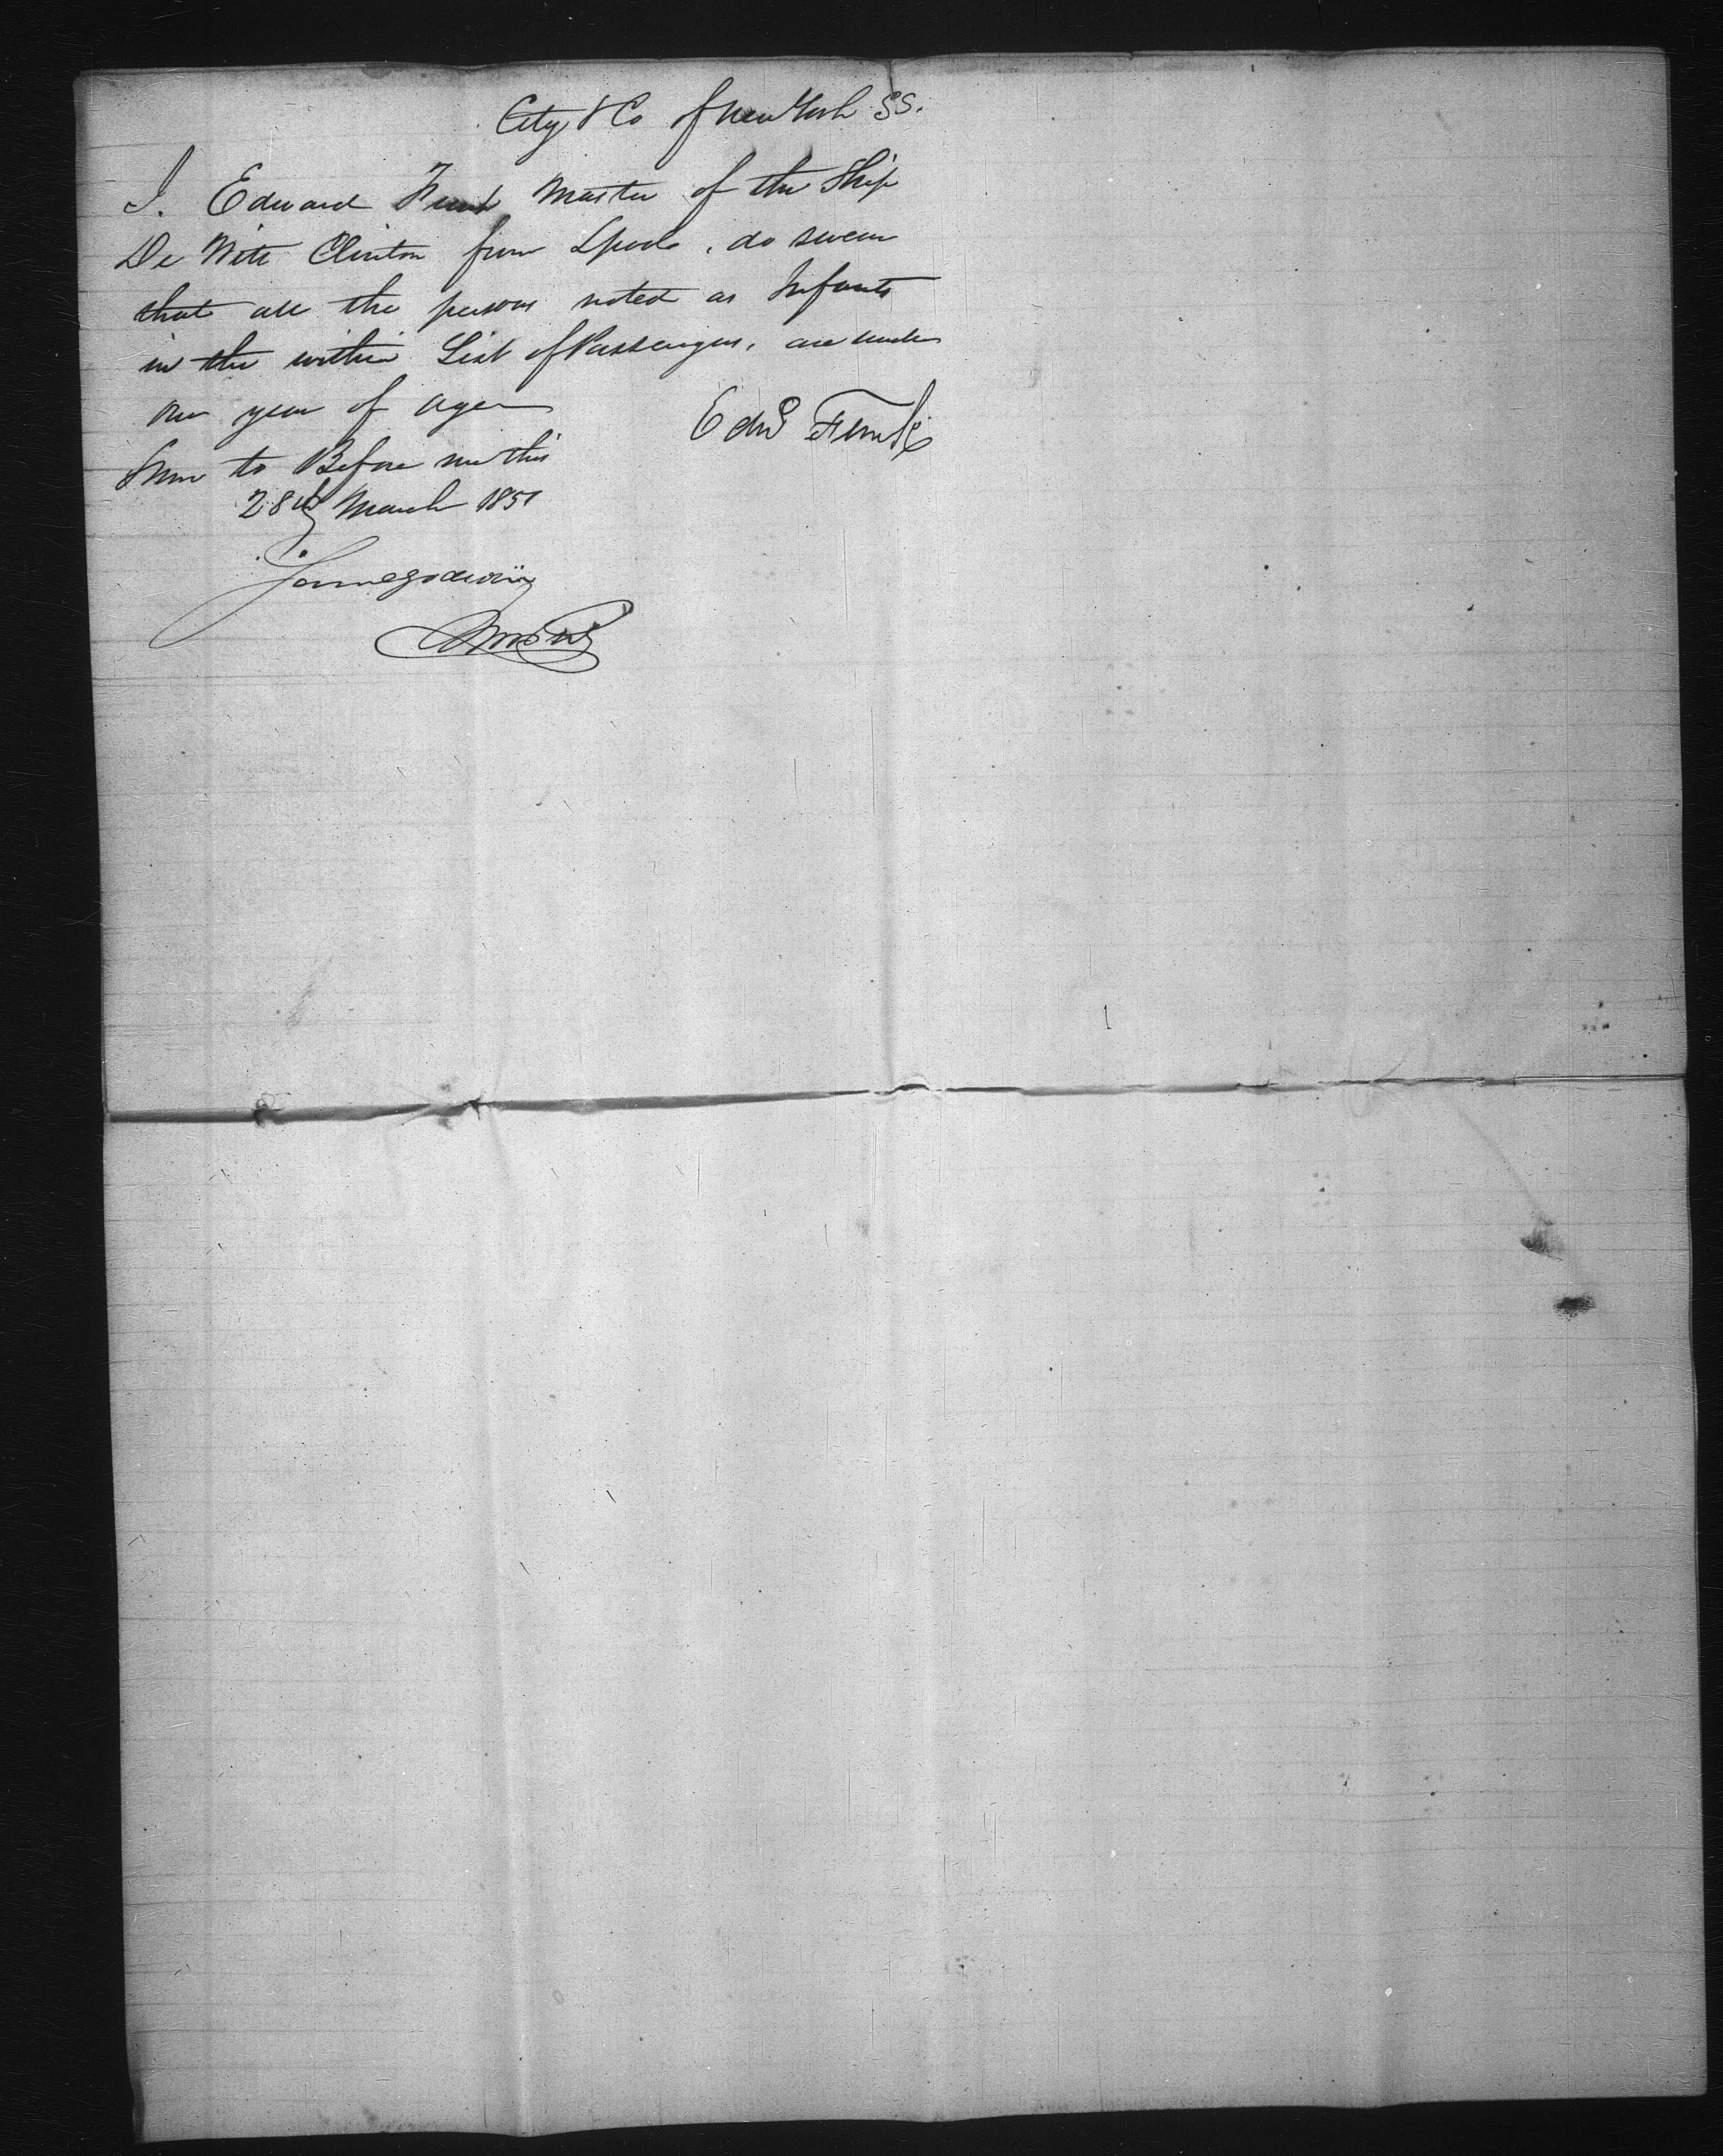 City & Co of New York SS.
I. Edward Funk Master of the Ship
De Witt Clinton from Lpool, do swear
that all the persons noted as Infants
in the within List of Passengers, are under
one year of age
Edwd Funk
Sworn to Before me this
28th March 1851